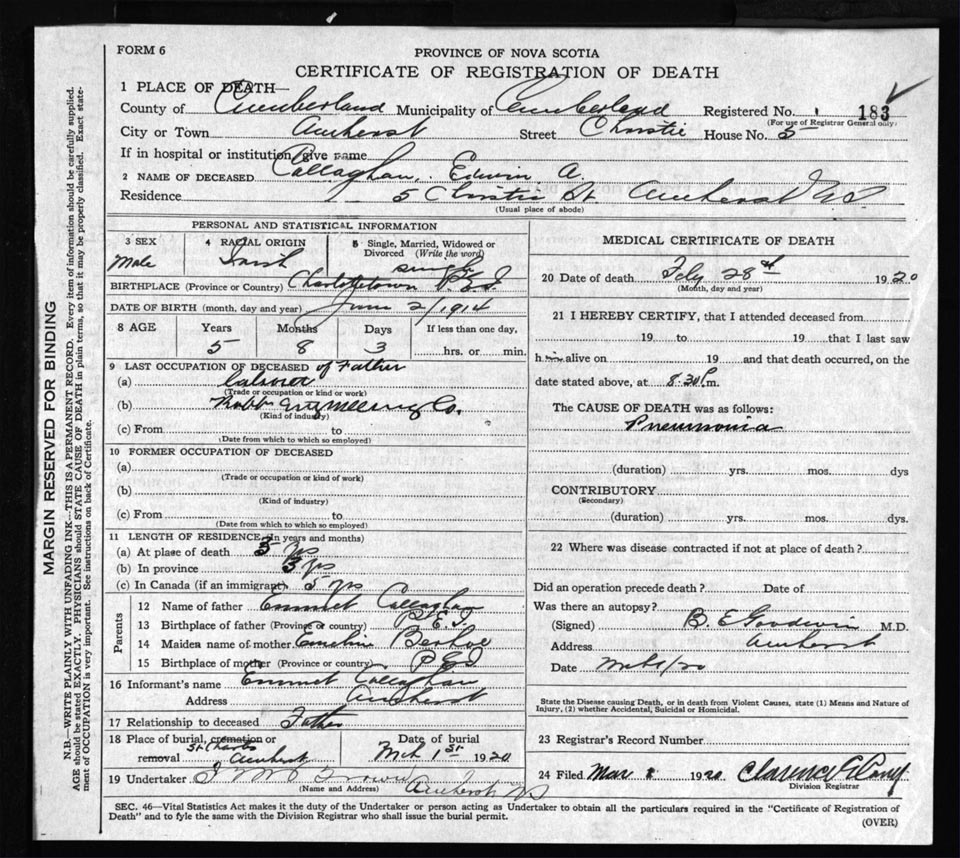 FORM 6
PROVINCE OF NOVA SCOTIA
CERTIFICATE OF REGISTRATION OF DEATH
MARGIN RESERVED FOR BINDING
N.B.—WRITE PLAINLY WITH UNFADING INK—THIS IS A PERMANENT RECORD. Every item of information should be carefully supplied.
AGE should be stated EXACTLY. PHYSICIANS should STATE CAUSE OF DEATH in plain terms, so that it may be properly classified. Exact state-
ment of OCCUPATION is very important. See instructions on back of Certificate.
1 PLACE OF DEATH—
County of Cumberland Municipality of Cumberland Registered No. 183
(For use of Registrar General only)
City or Town Amherst Street Christie House No. 5
If in hospital or institution, give name
2 NAME OF DECEASED Callaghan, Edwin A.
Residence 5 Christie St. Amherst NS
(Usual place of abode)
PERSONAL AND STATISTICAL INFORMATION
3 SEX Male
4 RACIAL ORIGIN Irish
5 Single, Married, Widowed or Divorced (Write the word) single
BIRTHPLACE (Province or Country) Charlottetown P.E.I.
DATE OF BIRTH (month, day and year) June 2/1914
8 AGE Years Months Days If less than one day,
5 8 3 hrs. or min.
9 LAST OCCUPATION OF DECEASED of Father
(a)
(Trade or occupation or kind or work)
(b) Co.
(Kind of industry)
(c) From to
(Date from which to which so employed)
10 FORMER OCCUPATION OF DECEASED
(a)
(Trade or occupation or kind of work)
(b)
(Kind of industry)
(c) From to
(Date from which to which so employed)
11 LENGTH OF RESIDENCE (In years and months)
(a) At place of death 5 yrs
(b) In province 5 yrs
(c) In Canada (if an immigrant) 5 yrs
Parents
12 Name of father Emmet Callaghan
13 Birthplace of father (Province or country) P.E.I.
14 Maiden name of mother
15 Birthplace of mother (Province or country) P.E.I.
16 Informant's name Emmet Callaghan
Address Amherst
17 Relationship to deceased Father
18 Place of burial, cremation or removal St Charles Amherst
Date of burial Mch 1st 1920
19 Undertaker Brown Amherst NS
(Name and Address)
MEDICAL CERTIFICATE OF DEATH
20 Date of death Feby 28th 1920
(Month, day and year)
21 I HEREBY CERTIFY, that I attended deceased from
19 to 19 that I last saw
h im alive on 19 and that death occurred, on the
date stated above, at 8.30 P.m.
The CAUSE OF DEATH was as follows:
Pneumonia
(duration) yrs. mos. dys
CONTRIBUTORY
(Secondary)
(duration) yrs. mos. dys.
22 Where was disease contracted if not at place of death?
Did an operation precede death? Date of
Was there an autopsy?
(Signed) B. E. Goodwin M.D.
Address Amherst
Date Mch 1/20
State the Disease causing Death, or in death from Violent Causes, state (1) Means and Nature of
Injury, (2) whether Accidental, Suicidal or Homicidal.
23 Registrar's Record Number
24 Filed Mar 1920 Clarence
Division Registrar
SEC. 46—Vital Statistics Act makes it the duty of the Undertaker or person acting as Undertaker to obtain all the particulars required in the "Certificate of Registration of
Death" and to fyle the same with the Division Registrar who shall issue the burial permit.
(OVER)